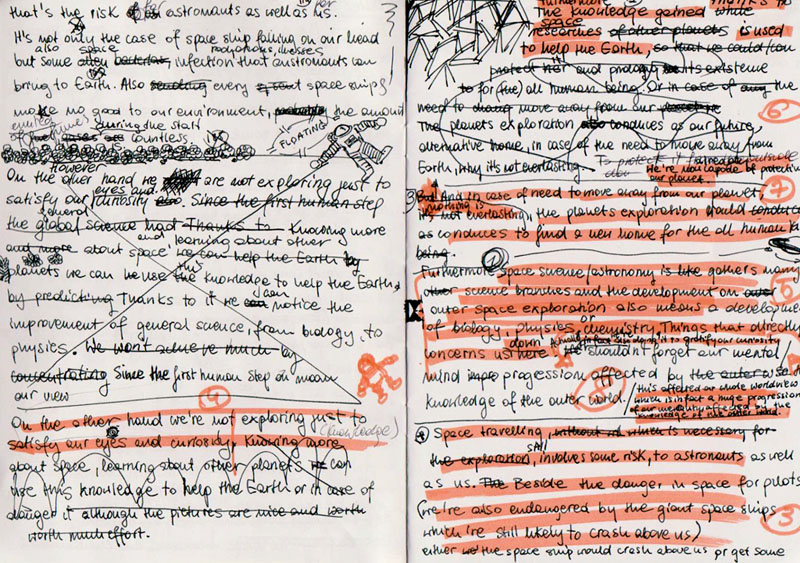 that's the risk for astronauts as well as us.
It's not only the case of space ship falling on our head
also space
but some infection that austronauts can
bring to Earth. Also every space ship
make no good to our environment, the amount
during the start
of countless
FLOATING
However
On the other hand we are not exploring just to
eyes and
satisfy our curiosity. Since the first human step
general
the global science had Thanks to knowing more
and
and more about space learning about other
we can help the Earth by
this
planets we can use the knowledge to help the Earth,
can
by predicting Thanks to it we notice the
improvement of general science, from biology, to
physics. We won't achieve much by
concentrating Since the first human step on mean
our view
4
On the other hand we're not exploring just to
(knowledge)
satisfy our eyes and curiosity. Knowing more
about space, learning about other planets we can
use this knowledge to help the Earth or in case of
danger it although the pictures are nice and worth
worth much effort.
Furthermore Thanks to
the knowledge gained while
space
researches of other planets is used
to help the Earth, so that we could/can
protect it and prolong its existence
to for the/ all human being. Or in case of the
need to move away from our
6
The planets exploration also conduces as our future
alternative home, in case of the need to move away from
Earth, it's not everlasting.
To protect it from outside
He're now capable of protecting
our planet.
7
But And in case of need to move away from our planet,
nothing is
it's not everlasting, the planets exploration could conduce
as conduces to find a new home for the all human
being.
Furthermore Space science/astronomy is like gathers many
5
other science branches and the development on
outer space exploration also means a development
or
of biology, physics, chemistry. Things that directly
down
concerns us here shouldn't forget our mental/
mind progression affected by the outer
knowledge of the outer world.
this affected our whole worldview
which is in fact a huge progression
of our mentality affected by the
knowledge of the outer world.
Space travelling, without it which is necessary for
still
the exploration, involves some risk, to astronauts as well
as us. The Beside the danger in space for pilots
(we're also endangered by the giant space ships
3
which're still likely to crash above us)
either we the space ship would crash above us or get some